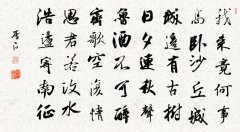 我來竟何事
高臥沙丘城
城邊有古樹
日夕連秋聲
魯酒不可醉
齊歌空復情
思君若汶水
浩蕩寄南征